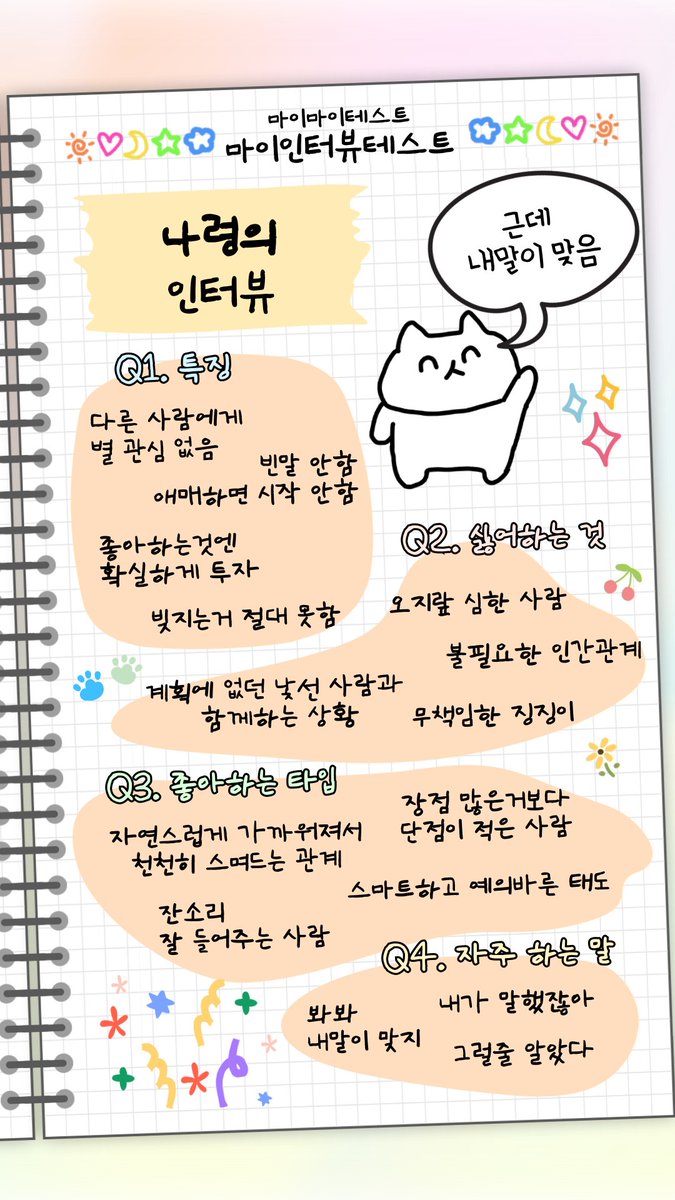 마이마이테스트
마이인터뷰테스트
나령의
인터뷰
근데
내말이 맞음
Q1. 특징
다른 사람에게
별 관심 없음
빈말 안함
애매하면 시작 안함
좋아하는것엔
확실하게 투자
빚지는거 절대 못함
Q2. 싫어하는 것
오지랖 심한 사람
불필요한 인간관계
계획에 없던 낯선 사람과
함께하는 상황
무책임한 징징이
Q3. 좋아하는 타입
자연스럽게 가까워져서
천천히 스며드는 관계
장점 많은거보다
단점이 적은 사람
스마트하고 예의바른 태도
잔소리
잘 들어주는 사람
Q4. 자주 하는 말
봐봐
내말이 맞지
내가 말했잖아
그럴줄 알았다